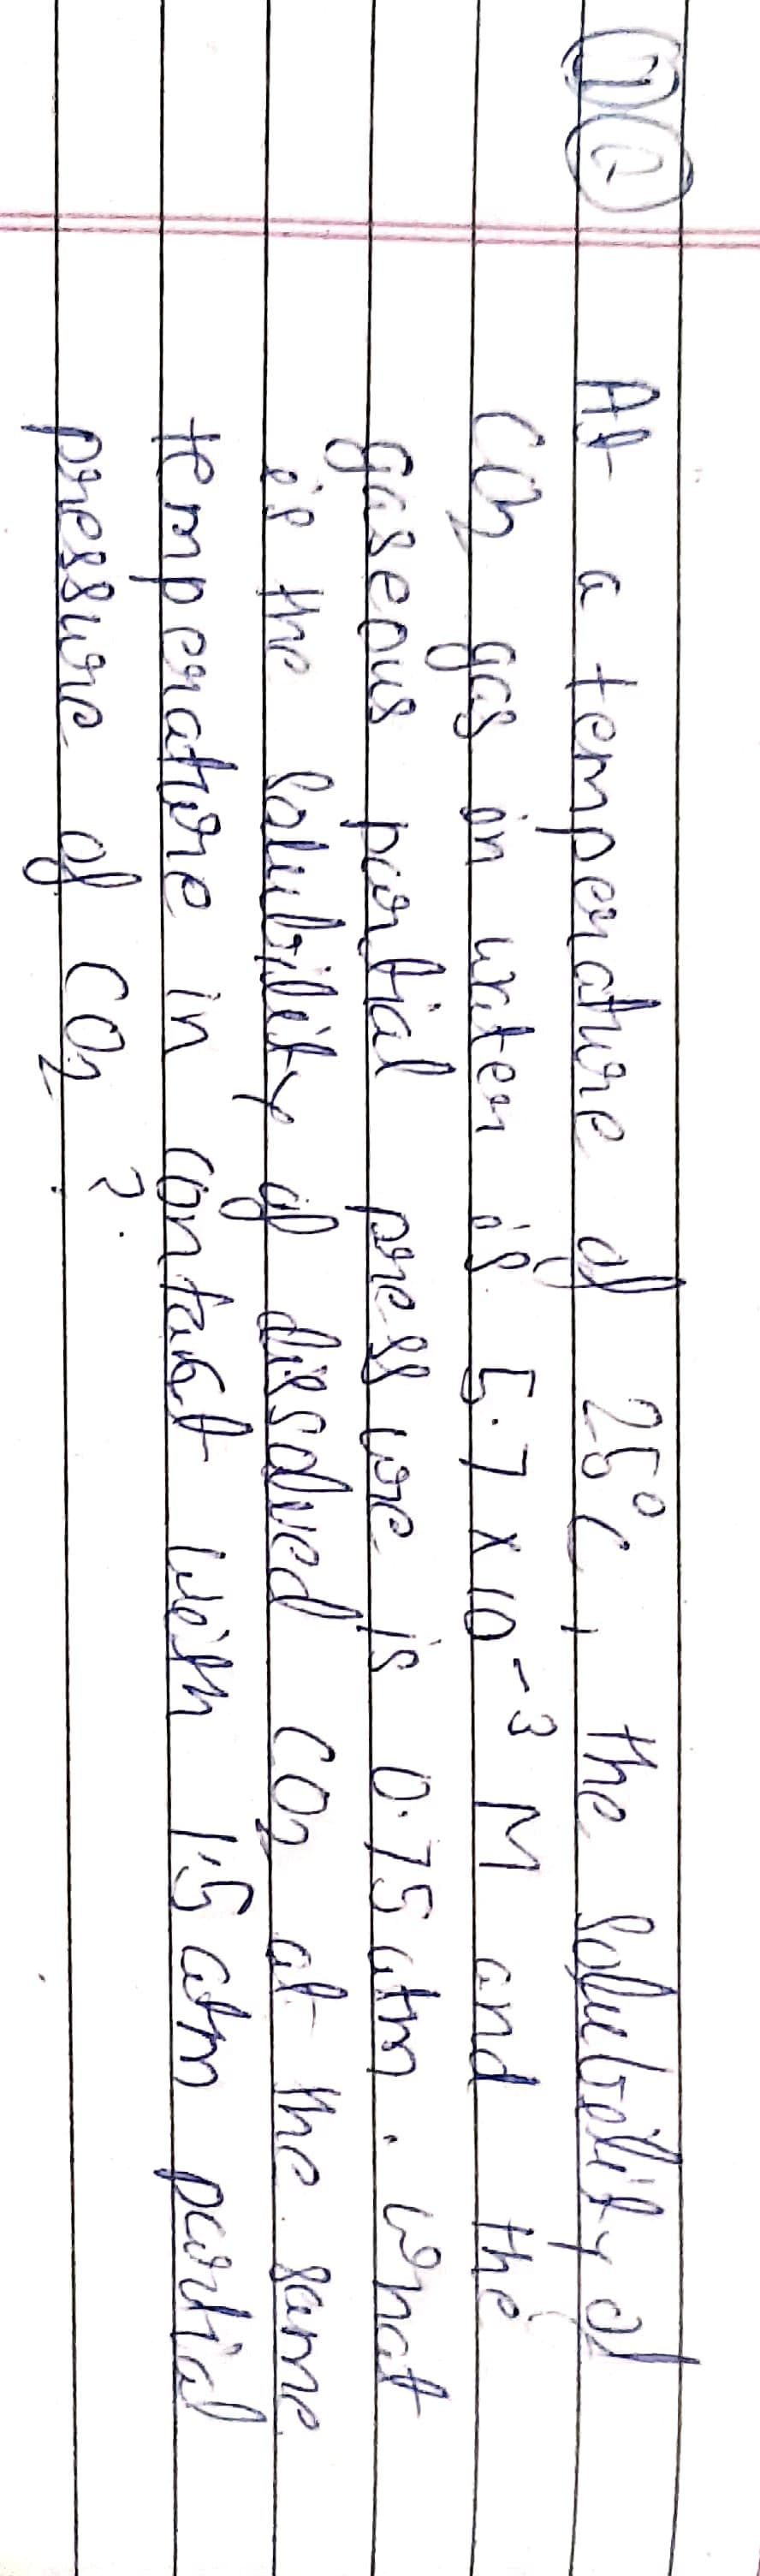 At a temperature of 25°C, the solubility of
CO2 gas in water is 5.7 x 10⁻³ M and the
gaseous partial pressure is 0.75 atm. What
is the solubility of dissolved CO2 at the same
temperature in contact with 1.5 atm partial
pressure of CO2 ?